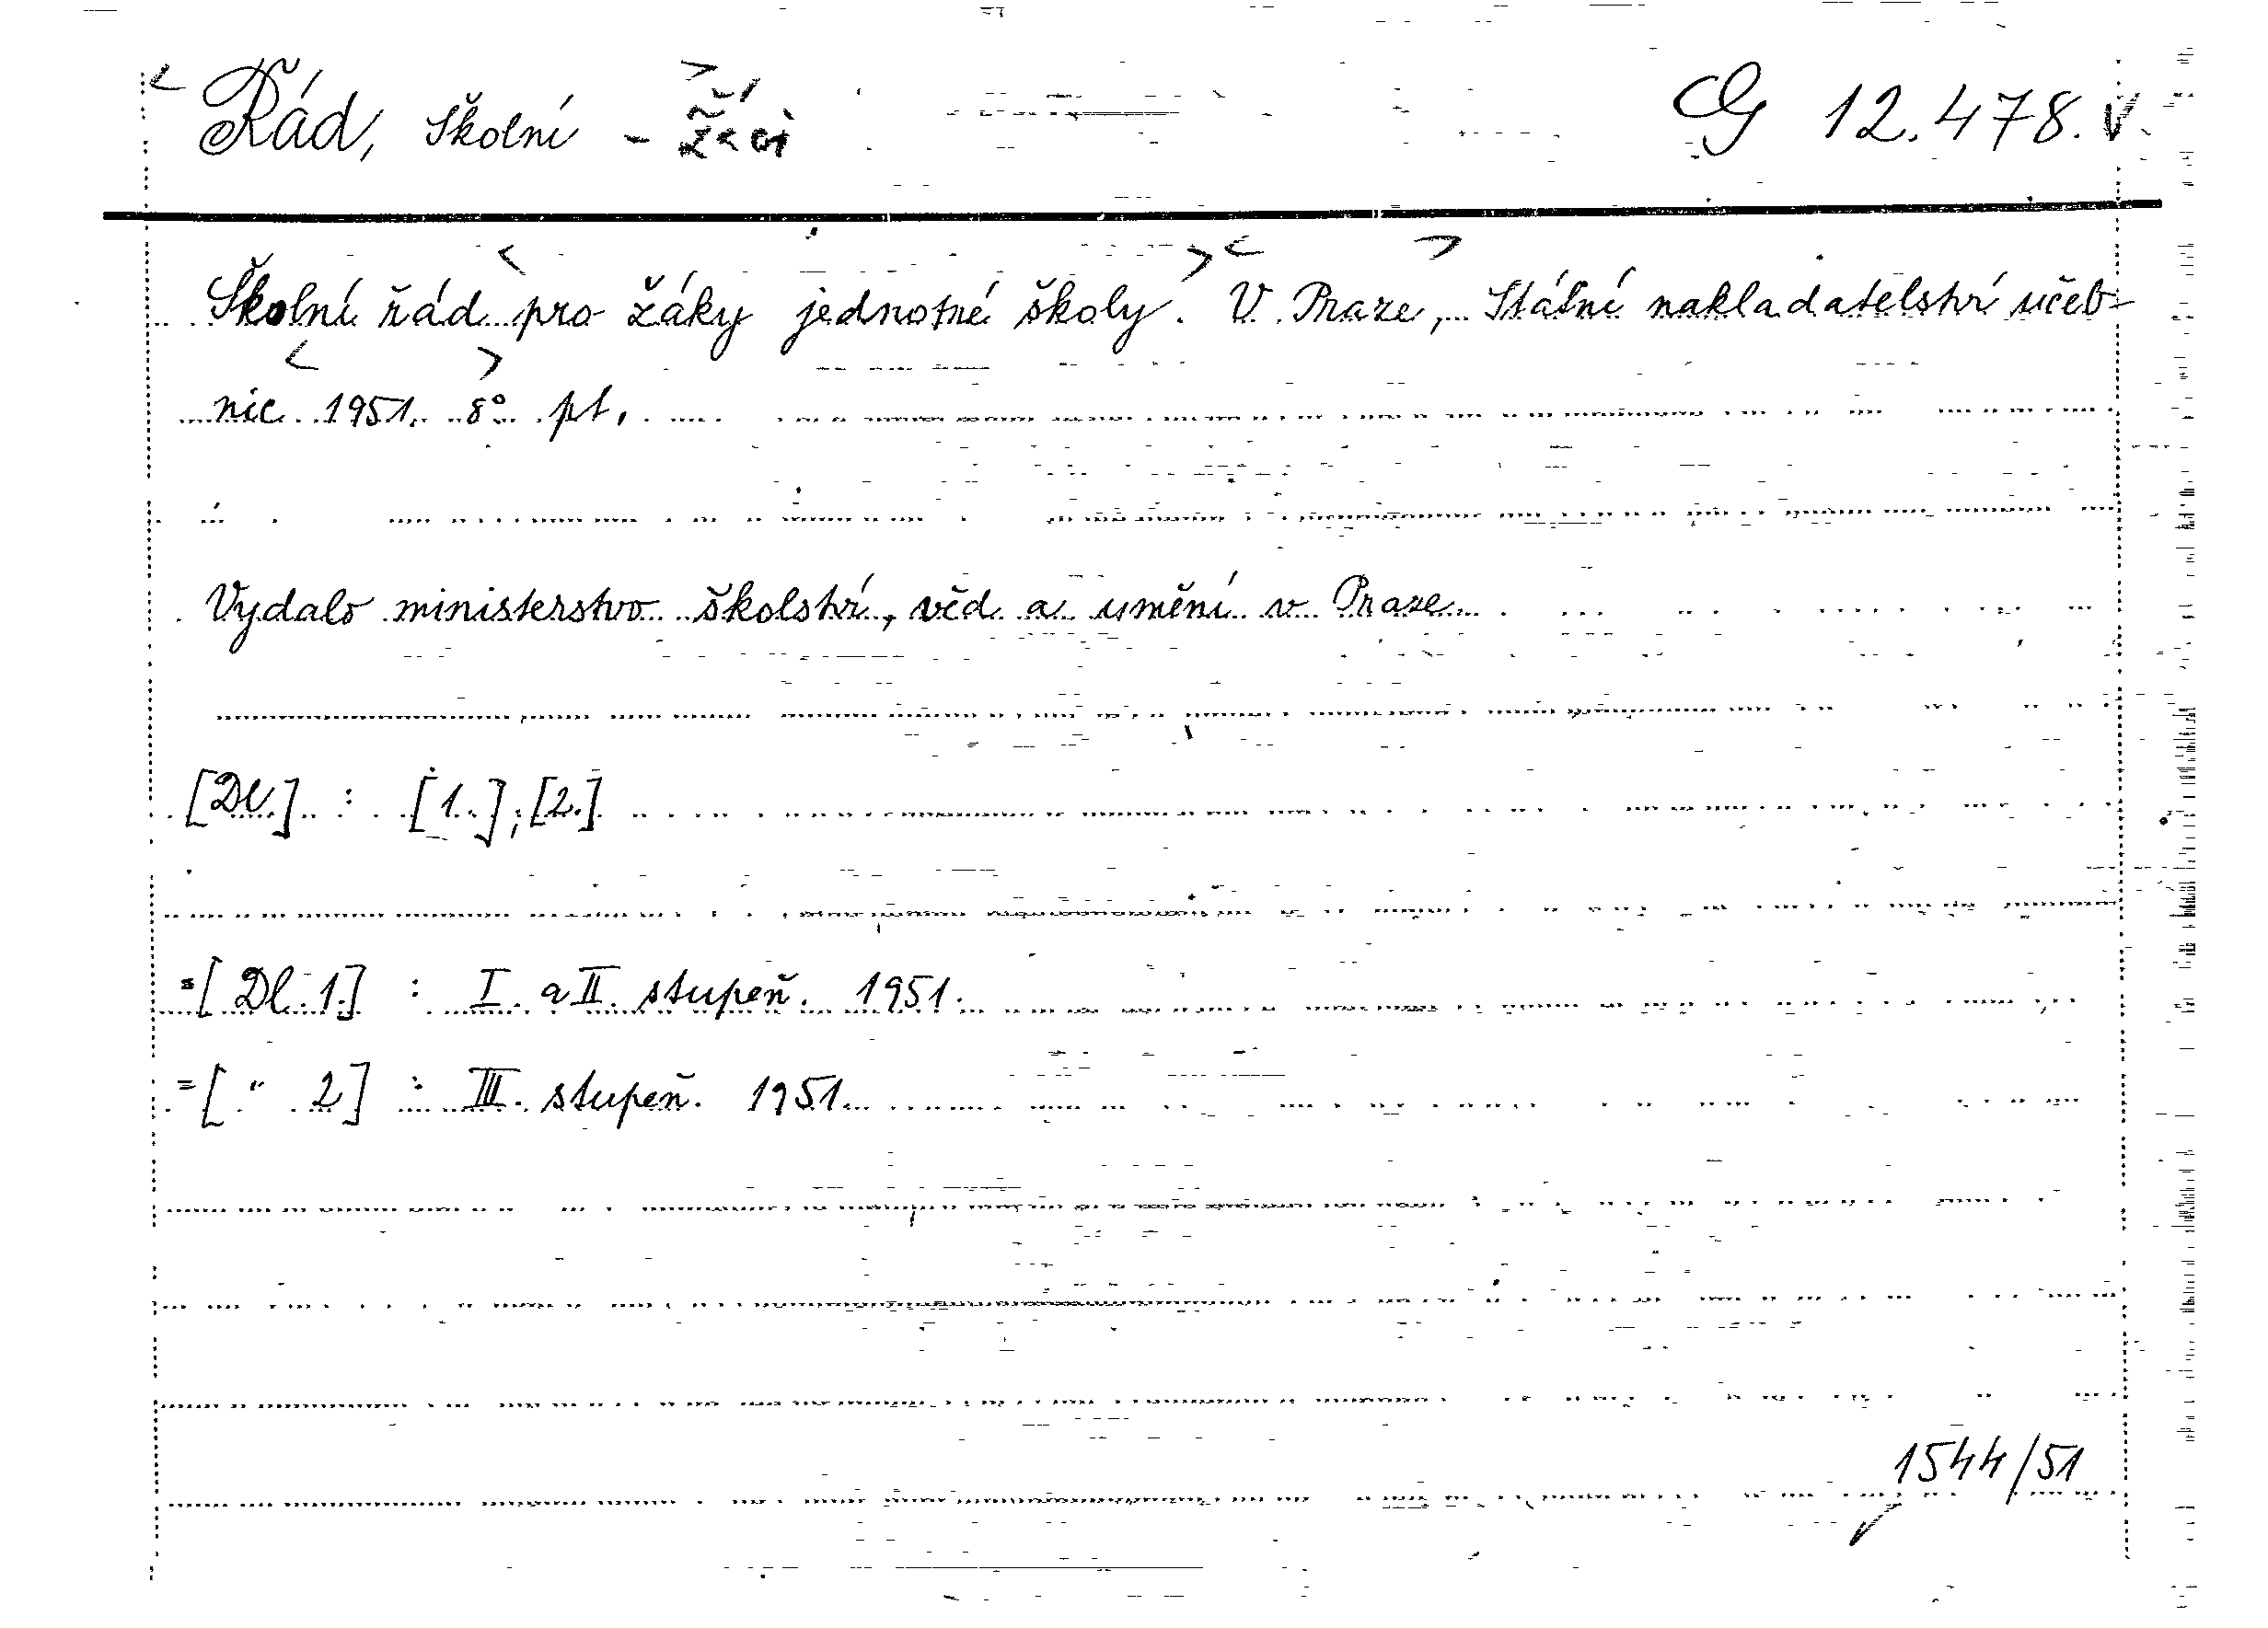 Řád, školní - žáci G 12.478.
Školní řád pro žáky jednotné školy. V Praze, Státní nakladatelství učeb-
nic 1951. 8° pt.
Vydalo ministerstvo školství, věd a umění v Praze.
[Dl.] : [1.]; [2.]
=[Dl. 1.] : I. a II. stupeň. 1951.
=[ " 2] : III. stupeň. 1951.
1544/51